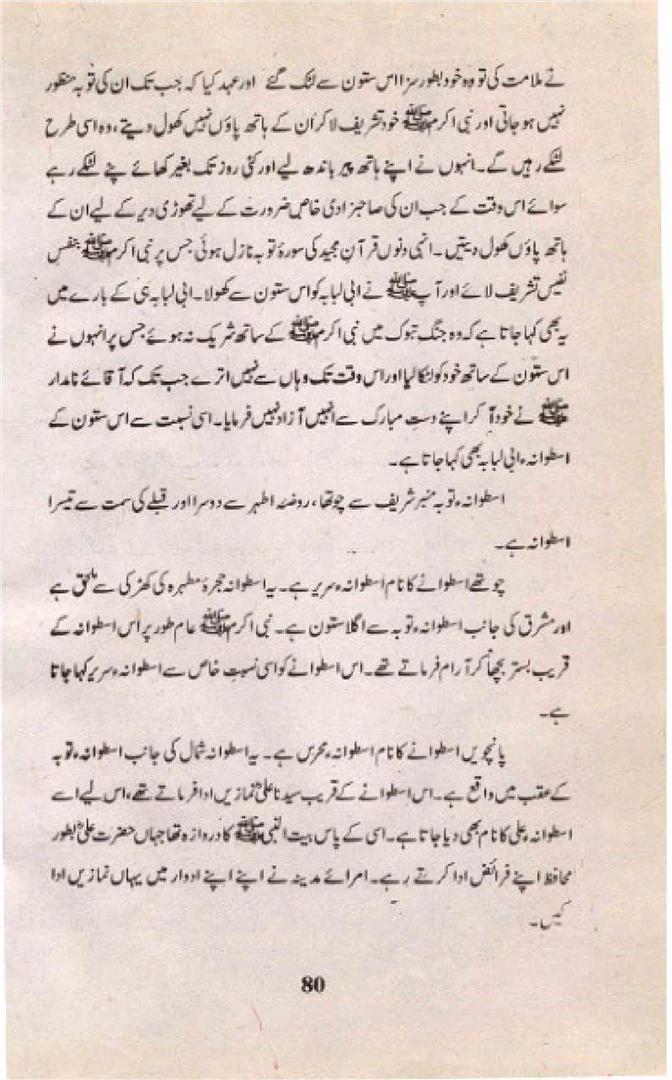 نے ملامت کی تو وہ خود بطور سزا اس ستون سے لٹک گئے اور عہد کیا کہ جب تک ان کی توبہ منظور
نہیں ہو جاتی اور نبی اکرم ﷺ خود تشریف لا کر اُن کے ہاتھ پاؤں نہیں کھول دیتے، وہ اسی طرح
لٹکے رہیں گے۔ انہوں نے اپنے ہاتھ پیر باندھ لیے اور کئی روز تک بغیر کھائے پئے لٹکے رہے
سوائے اس وقت کے جب ان کی صاحبزادی خاص ضرورت کے لیے تھوڑی دیر کے لیے ان کے
ہاتھ پاؤں کھول دیتیں۔ انہی دنوں قرآن مجید کی سورۂ توبہ نازل ہوئی جس پر نبی اکرم ﷺ بنفس
نفیس تشریف لائے اور آپ ﷺ نے ابی لبابہ کو اس ستون سے کھولا۔ ابی لبابہ ہی کے بارے میں
یہ بھی کہا جاتا ہے کہ وہ جنگ تبوک میں نبی اکرم ﷺ کے ساتھ شریک نہ ہوئے جس پر انہوں نے
اس ستون کے ساتھ خود کو لٹکا لیا اور اس وقت تک وہاں سے نہیں اترے جب تک کہ آقائے نامدار
ﷺ نے خود آ کر اپنے دست مبارک سے انہیں آزاد نہیں فرمایا۔ اسی نسبت سے اس ستون کے
اسطوانہء ابی لبابہ بھی کہا جاتا ہے۔
اسطوانہء توبہ منبر شریف سے چوتھا، روضہ اطہر سے دوسرا اور قبلے کی سمت سے تیسرا
اسطوانہ ہے۔
چوتھے اسطوانے کا نام اسطوانہء سریر ہے۔ یہ اسطوانہ حجرۂ مطہرہ کی کھڑکی سے ملحق ہے
اور مشرق کی جانب اسطوانہء توبہ سے اگلا ستون ہے۔ نبی اکرم ﷺ عام طور پر اس اسطوانہ کے
قریب بستر بچھا کر آرام فرماتے تھے۔ اس اسطوانے کو اسی نسبت خاص سے اسطوانہء سریر کہا جاتا
ہے۔
پانچویں اسطوانے کا نام اسطوانہء محرس ہے۔ یہ اسطوانہ شمال کی جانب اسطوانہء توبہ
کے عقب میں واقع ہے۔ اس اسطوانے کے قریب سیدنا علیؓ نمازیں ادا فرماتے تھے، اس لیے اسے
اسطوانہء علی کا نام بھی دیا جاتا ہے۔ اسی کے پاس بیت النبی ﷺ کا دروازہ تھا جہاں حضرت علیؓ بطور
محافظ اپنے فرائض ادا کرتے رہے۔ امرائے مدینہ نے اپنے اپنے ادوار میں یہاں نمازیں ادا
کیں۔
80